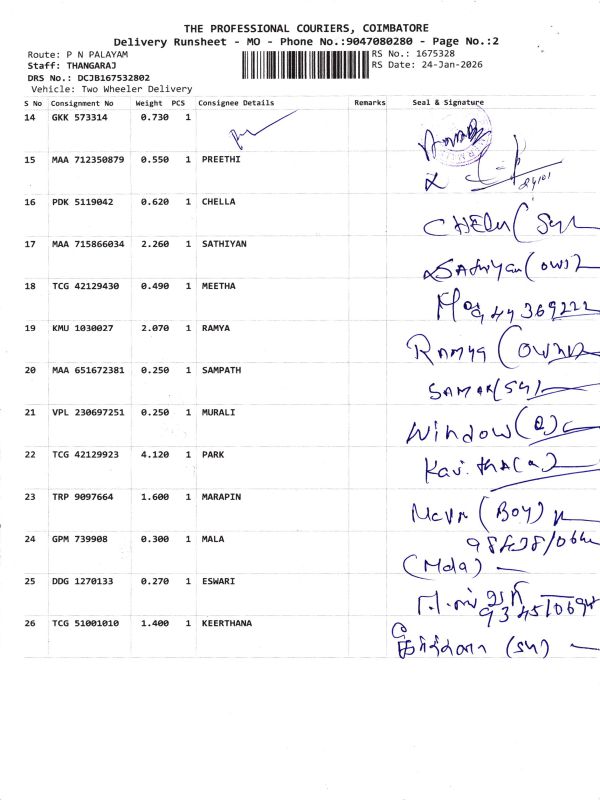 THE PROFESSIONAL COURIERS, COIMBATORE
Delivery Runsheet - MO - Phone No.:9047080280 - Page No.:2
Route: P N PALAYAM
RS No.: 1675328
Staff: THANGARAJ
RS Date: 24-Jan-2026
DRS No.: DCJB167532802
Vehicle: Two Wheeler Delivery
S No Consignment No Weight PCS Consignee Details Remarks Seal & Signature
14 GKK 573314 0.730 1
15 MAA 712350879 0.550 1 PREETHI
16 PDK 5119042 0.620 1 CHELLA
17 MAA 715866034 2.260 1 SATHIYAN
Sathiyan (own)
18 TCG 42129430 0.490 1 MEETHA
19 KMU 1030027 2.070 1 RAMYA
Ramya (owner)
20 MAA 651672381 0.250 1 SAMPATH
21 VPL 230697251 0.250 1 MURALI
Window
22 TCG 42129923 4.120 1 PARK
Kavitha
23 TRP 9097664 1.600 1 MARAPIN
(Boy)
24 GPM 739908 0.300 1 MALA
(Mala)
25 DDG 1270133 0.270 1 ESWARI
26 TCG 51001010 1.400 1 KEERTHANA
கீர்த்தனா